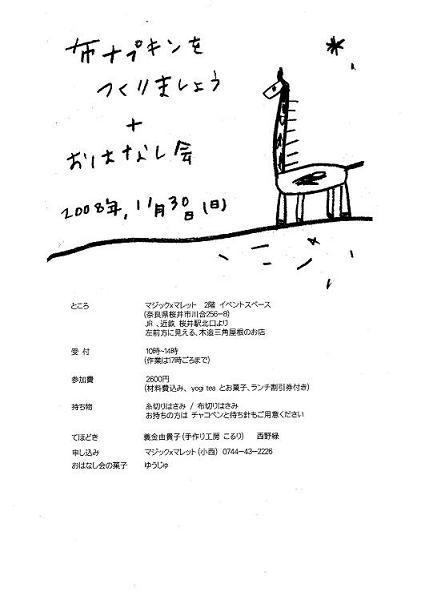 布ナプキンを
つくりましょう
+
おはなし会
2008年,11月30日(日)
ところ マジック×マレット 2階 イベントスペース
(奈良県桜井市川合256-8)
JR、近鉄 桜井駅北口より
左前方に見える、木造三角屋根のお店
受 付 10時~14時
(作業は17時ごろまで)
参加費 2600円
(材料費込み、yogi tea とお菓子、ランチ割引券付き)
持ち物 糸切りはさみ / 布切りはさみ
お持ちの方は チャコペンと待ち針もご用意ください
てほどき 養金由貴子(手作り工房 こるり) 西野緑
申し込み マジック×マレット(小西) 0744-43-2226
おはなし会の菓子 ゆうじゅ